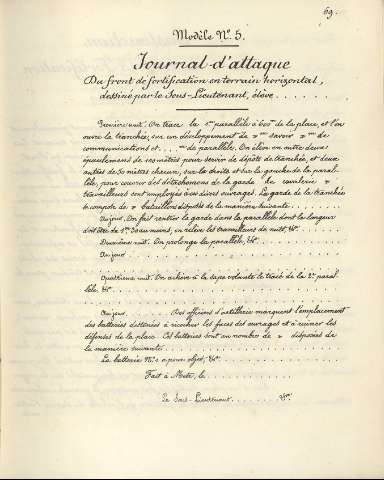 69.
Modèle No. 5.
Journal d'attaque
Du front de fortification en terrain horizontal,
dessiné par le Sous-Lieutenant, élève . . . . . .
Première nuit. On trace la 1re parallèle à 600m de la place, et l'on
ouvre la tranchée, sur un développement de " m savoir " m de
communications et . . . m de parallèle. On élève en outre deux
épaulements de 120 mètres pour servir de dépôts de tranchée, et deux
autres de 30 mètres chacun, sur la droite et sur la gauche de la paral-
lèle, pour couvrir des détachemens de la garde de cavalerie "
travailleurs sont employés à ces divers ouvrages. La garde de la tranchée
se compose de " bataillons disposés de la manière suivante . . . .
Au jour. On fait rentrer la garde dans la parallèle dont la largeur
doit être de au moins, on relève les travailleurs de nuit, &c.
Deuxième nuit. On prolonge la parallèle, &c.
Au jour . . . .
Quatrième nuit. On achève à la sape volante le tracé de la 2e paral-
lèle, &c.
Au jour . . . . Des officiers d'artillerie marquent l'emplacement
des batteries destinées à ricocher les faces des ouvrages et à ruiner les
défenses de la place. Ces batteries sont au nombre de " disposées de
la manière suivante . . . .
La batterie No. 1 a pour objet, &c.
Fait à Metz, le . . . .
Le Sous-Lieutenant . . . .